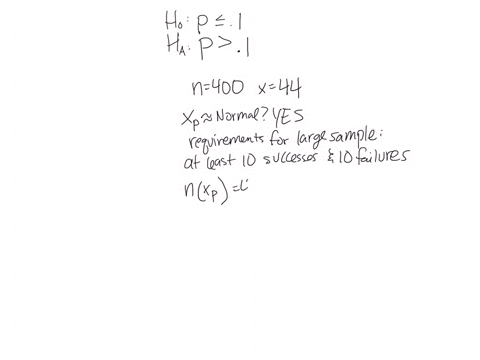 H₀: p ≤ .1
Hₐ: p > .1
n=400 x=44
Xₚ ≈ Normal? YES
requirements for large sample:
at least 10 successes & 10 failures
n(xₚ) =